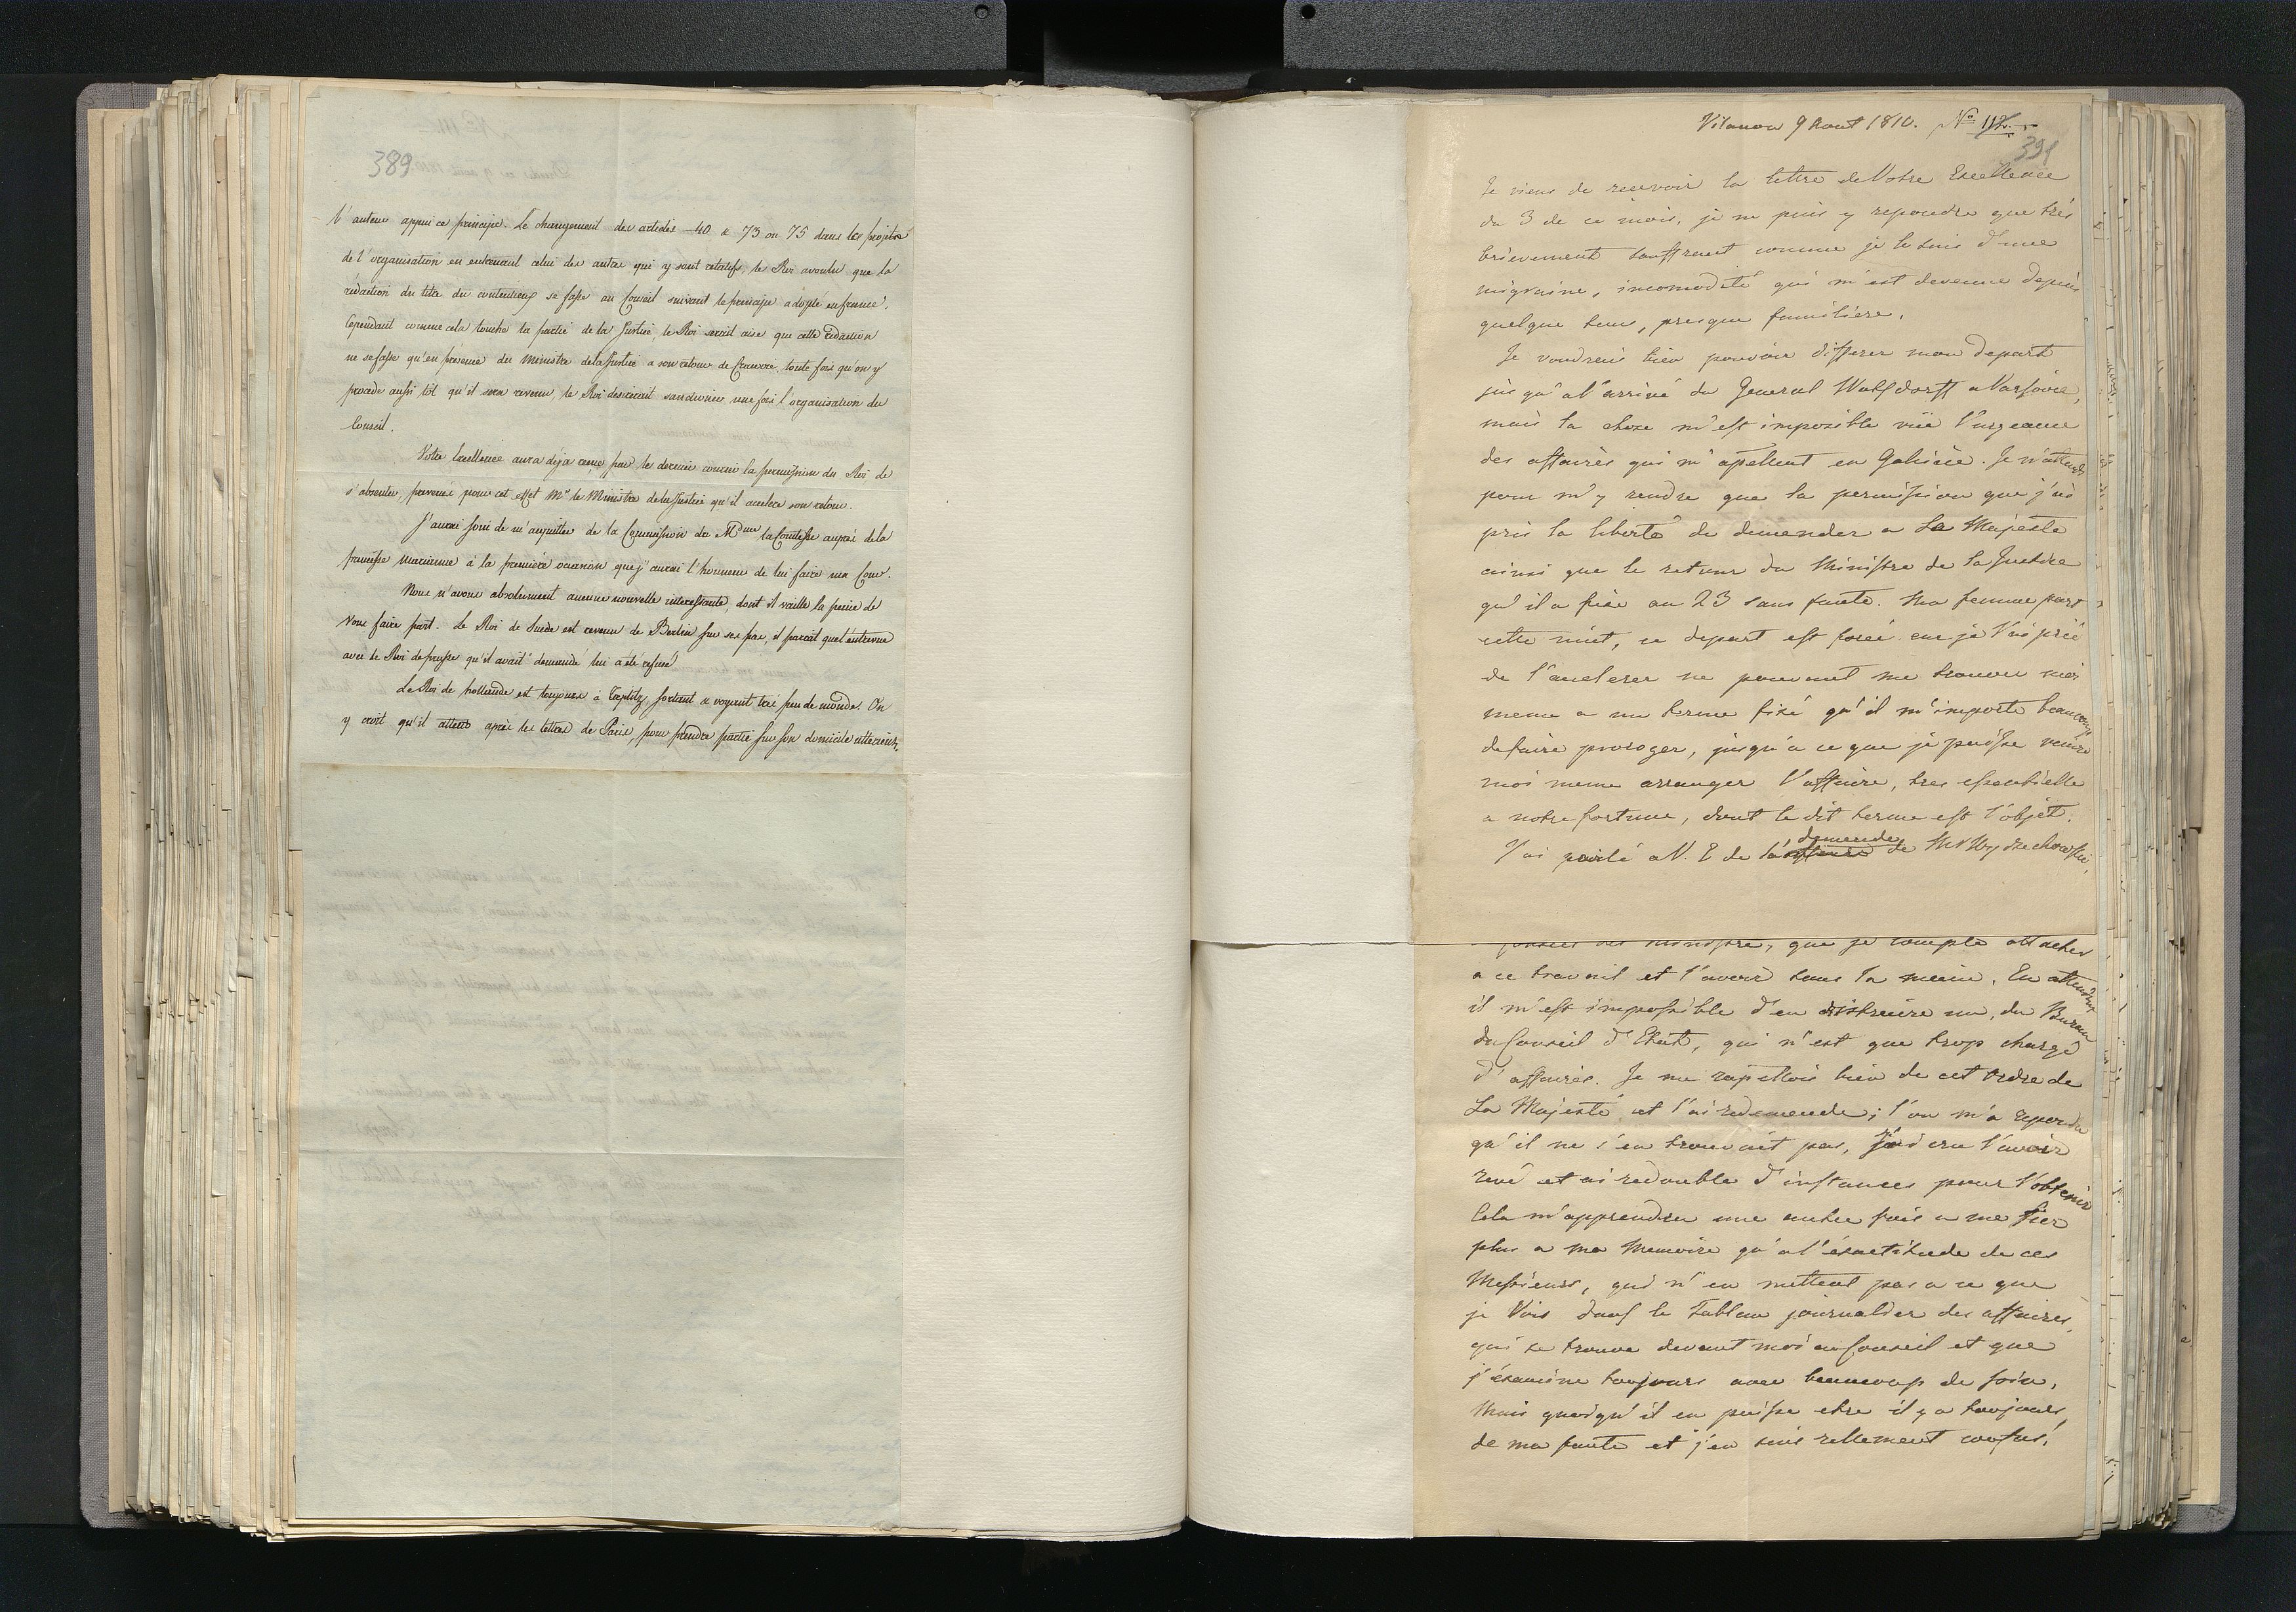 389
l'auteur appui ce principe. Le changement des articles 40 & 73 ou 75 dans les projets
de l'organisation en entrainant celui des autres qui y sont relatifs, le Roi a voulu que la
rédaction du titre du contentieux se fasse au Conseil suivant le principe adopté en france.
Cependant comme cela touche la partie de la Justice, le Roi serait aise que cette rédaction
ne se fasse qu'en présence du Ministre de la Justice a son retour de Cracovie, toute fois qu'on y
procede aussi tôt qu'il sera revenu, le Roi desirerait sanctionner une fois l'organisation du
Conseil.
Votre Excellence aura déja reçue par le dernier courrier la permission du Roi de
s'absenter, prevenez pour cet effet Mr le Ministre de la Justice qu'il accelere son retour.
J'aurai soin de m'acquitter de la Commission de Mdme la Comtesse auprès de la
princesse Marianne à la première occasion que j'aurai l'honneur de lui faire ma Cour.
Nous n'avons absolument aucune nouvelle interessante, dont il vaille la peine de
Vous faire part. Le Roi de Suède est revenu de Berlin sur ses pas, il parait que l'entrevue
avec le Roi de prusse qu'il avait demandé lui a été refusé
Le Roi de hollande est toujours à Toeplitz, sortant & voyant très peu de monde. On
y croit qu'il attend après les lettres de Paris, pour prendre partie sur son domicile ulterieur.
Vilanow 9 Aout 1810. No 112.
391
Je viens de recevoir la lettre de Votre Excellence
du 3 de ce mois, je ne puis y repondre que très
brievement souffrant comme je le suis d'une
migraine, incomodité qui m'est devenue depuis
quelque tems, presque familière.
Je voudrois bien pouvoir differer mon depart
jusqu'a l'arrivé du General Watzdorff a Varsovie,
mais la chose m'est impossible vüe l'urgeance
des affaires qui m'apellent en Galicie. Je n'attends
pour m'y rendre que la permission que j'ai
pris la liberté de demander a Sa Majesté
ainsi que le retour du Ministre de la Justice
qu'il a fixé au 23 sans faute. Ma femme part
cette nuit, ce depart est forcé car je l'ai prié
de l'accelerer ne pouvant me trouver moi
meme a un terme fixé qu'il m'importe beaucoup
de faire proroger, jusqu'a ce que je puisse venir
moi meme arranger l'affaire, tres essentielle
a notre fortune, dont le dit terme est l'objet.
J'ai parlé a V. E de la demande de Mr Woydzechowski,
ministre, que je compte attacher
a ce travail et l'avoir sous la main. En attendant
il m'est impossible d'en distraire un, du Bureau
du Conseil d'Etat, qui n'est que trop chargé
d'affaires. Je me rapellois bien de cet Ordre de
Sa Majesté et l'ai redemandé; l'on m'a repondu
qu'il ne s'en trouvait pas, j'ai cru l'avoir
revé et ai redoublé d'instances pour l'obtenir
Cela m'apprendra une autre fois a me fier
plus a ma Memoire qu'a l'exactitude de ces
Messieurs, qui n'en mettent pas a ce que
je Vois dans le Tableau journalier des affaires,
qui se trouve devant moi au Conseil et que
j'examine toujours avec beaucoup de soin,
Mais quoiqu'il en puisse etre il y a toujours
de ma faute et j'en suis rellement confus.